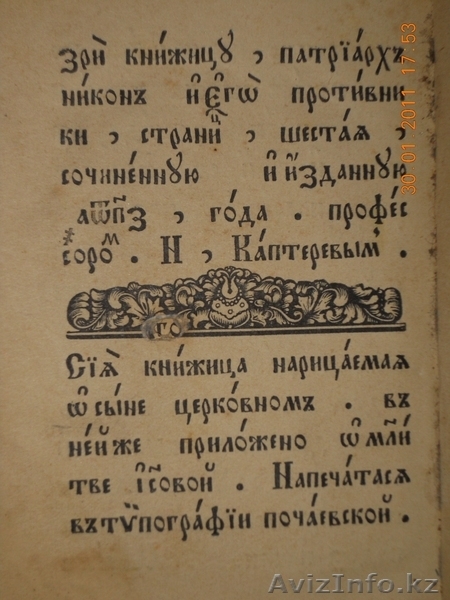 зрѝ кни́жицу , патрїа́рхъ
ни́конъ и҆ є҆гѡ̀ проти́вни
ки , страни́ц , шеста́ѧ ,
сочине́нную и҆ и҆́зданную
҂аѡ҃пз , го́да . профе́с
соромъ . Н , Ка́птеревымъ .
го
Сїѧ̀ кни́жица нарица́емаѧ
ѡ҆ сы́не церко́вномъ . въ
не́йже прило́жено ѡ҆ мл҃и
тве і҆с҃овой . Напеча́тасѧ
въ тѷпогра́фїи поча́евской .
30 01 2011 17:53
AvizInfo.kz